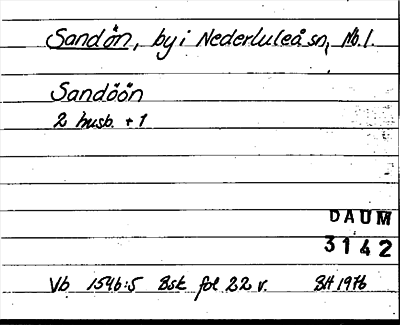 Sandön, by i Nederluleå sn, Nb.l.
Sandöön
2 husb. + 1
DAUM
3142
Vb 1546:5 Bsk fol 22 v. BH 1976